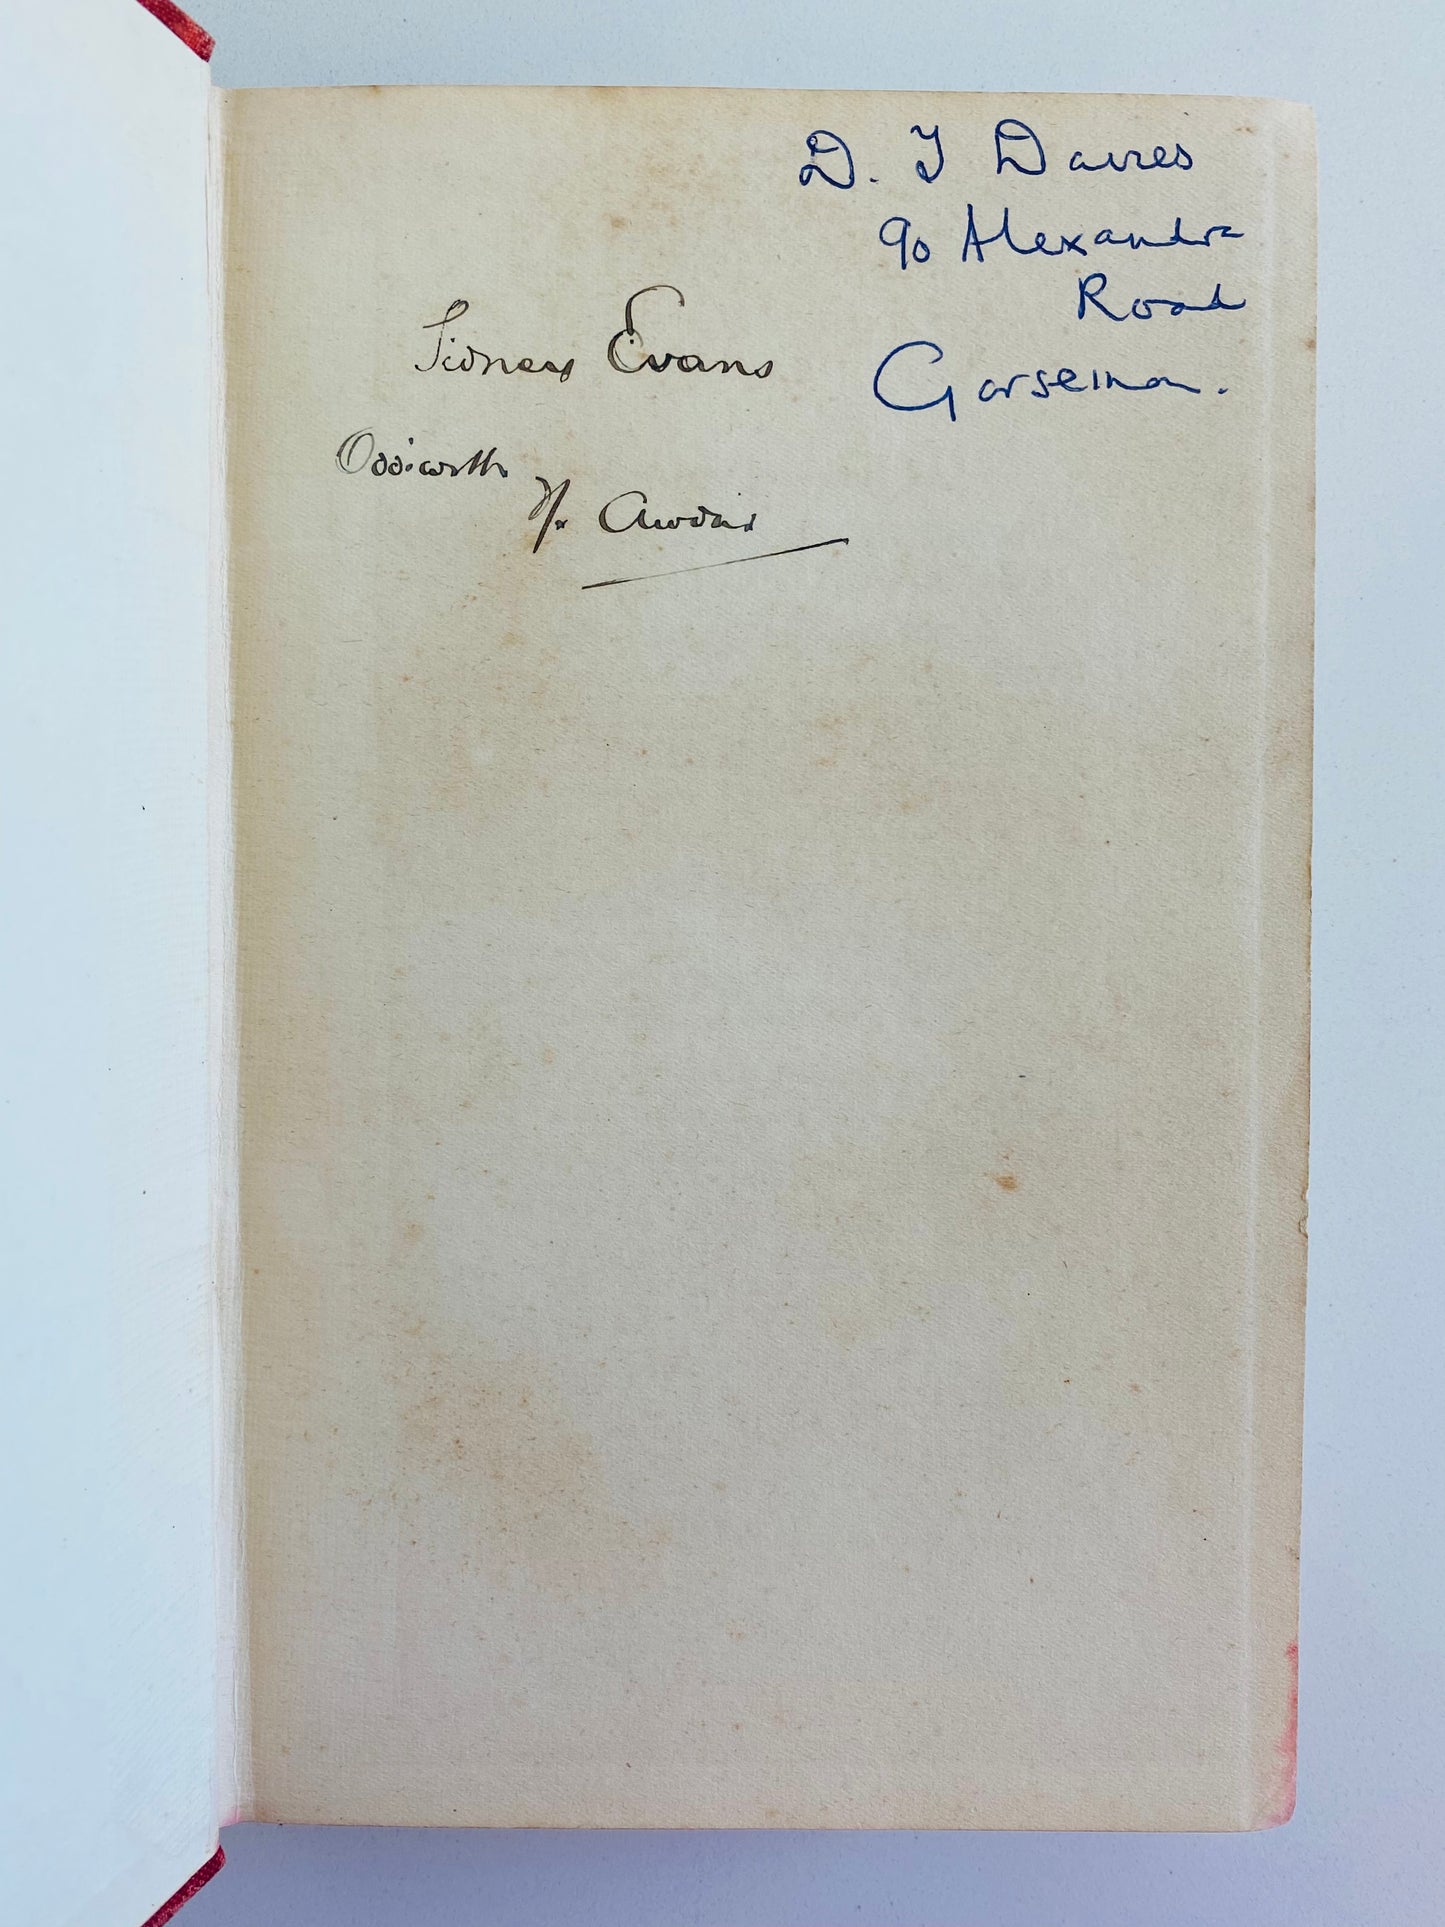 D. J Davies
90 Alexandra
Road
Gorseinon.
Sidney Evans
Oddiwrth
Yr Awdur